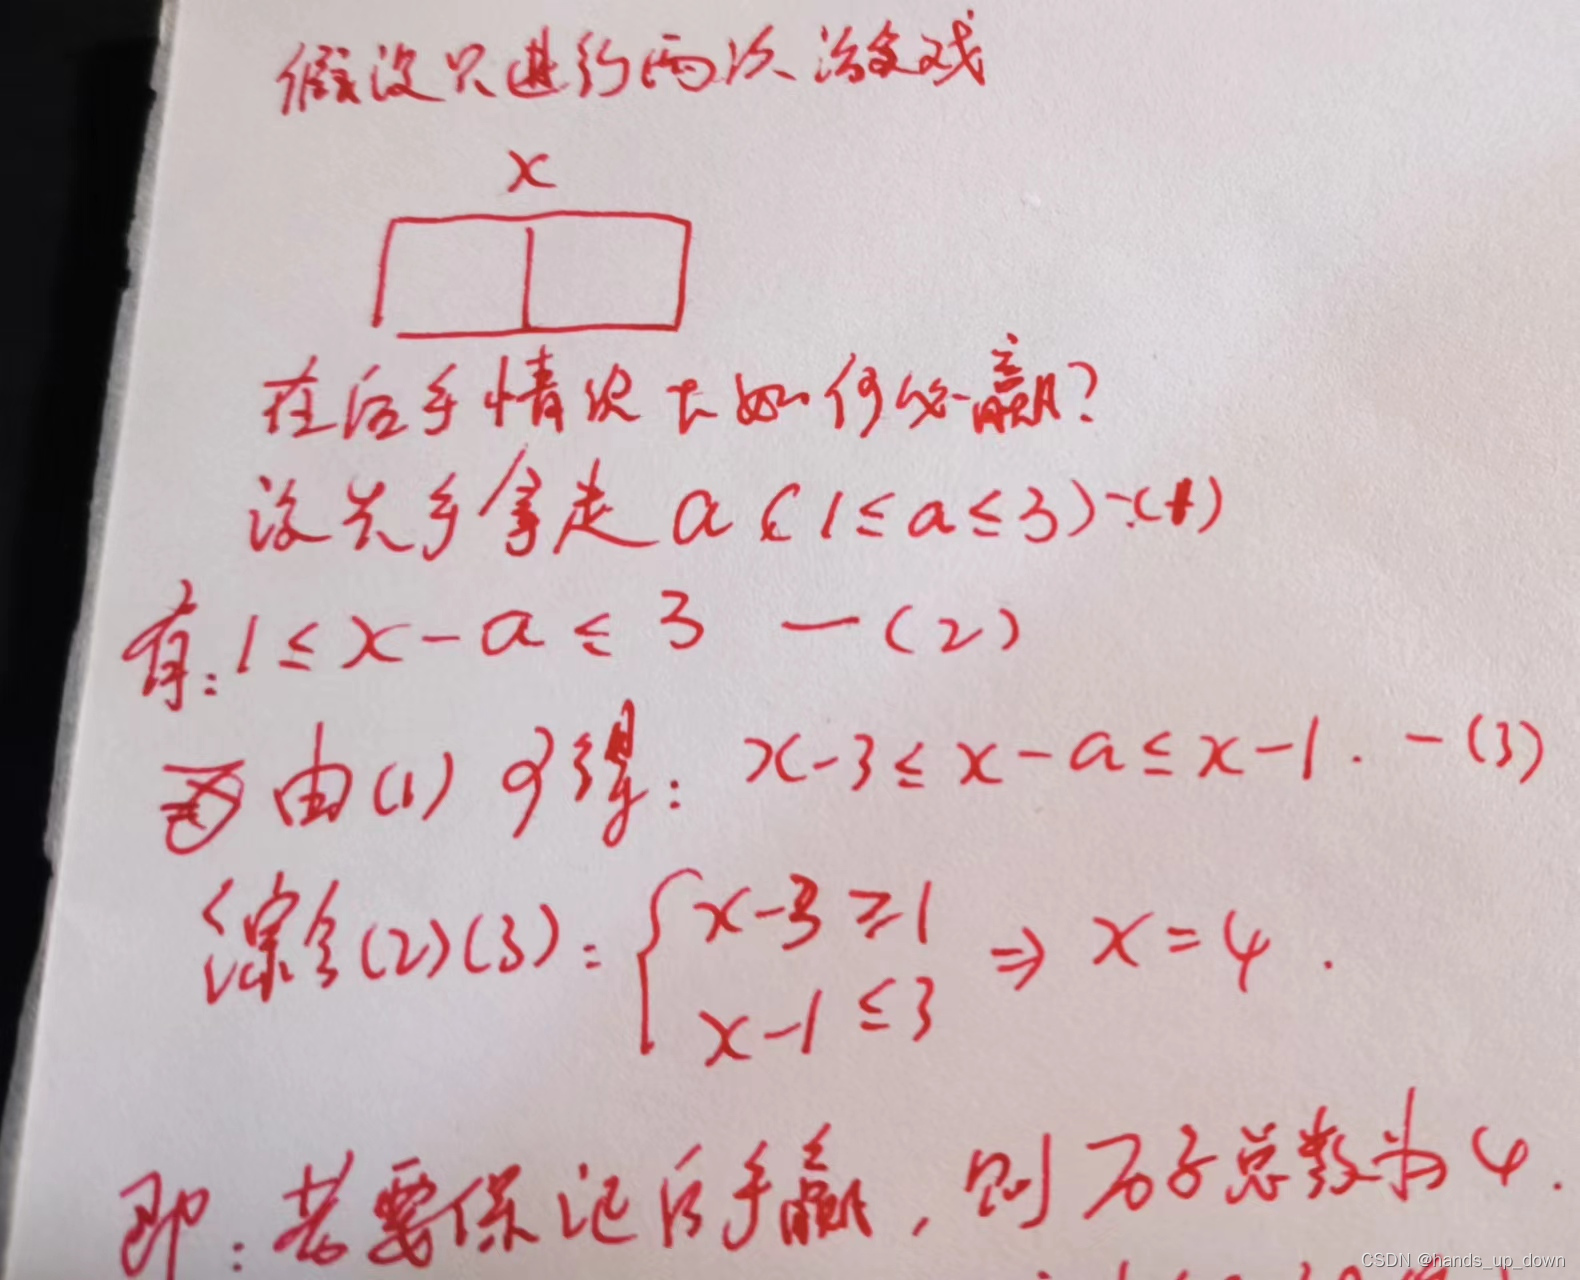 假设只进行两次游戏
x
在后手情况下如何必赢?
设先手拿走 a (1≤a≤3) -(1)
有: 1≤x-a≤3 —(2)
由(1)可得: x-3≤x-a≤x-1. -(3)
综合(2)(3): { x-3≥1
x-1≤3 ⇒ x=4.
即: 若要保证后手赢, 则石子总数为4.
CSDN @hands_up_down